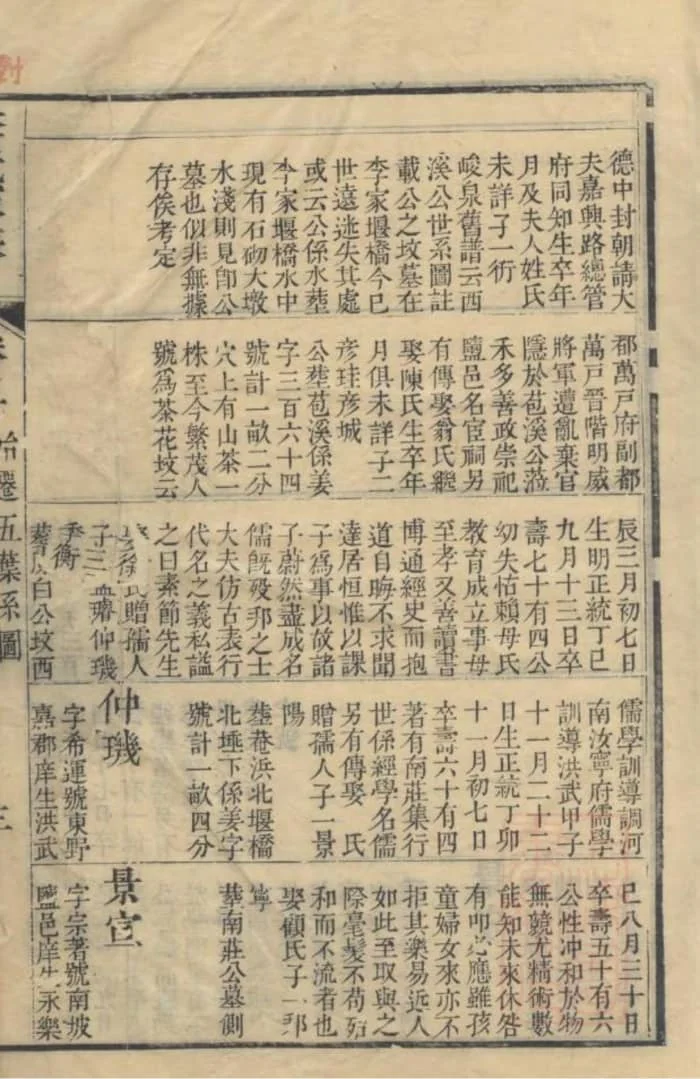 德中封朝請大
夫嘉興路總管
府同知生卒年
月及夫人姓氏
未詳子一術
峻泉舊譜云西
溪公世系圖註
載公之墳墓在
李家堰橋今已
世遠迷失其處
或云公係水塟
今李家堰橋水中
現有石砌大墩
水淺則見卽公
墓也似非無據
存俟考定
郡萬戸府副都
萬戸晉階明威
將軍遭亂棄官
隱於苞溪公蒞
禾多善政崇祀
鹽邑名宦祠另
有傳娶翁氏繼
娶陳氏生卒年
月俱未詳子二
彦珪彦城
公塟苞溪係姜
字三百六十四
號計一畝二分
穴上有山茶一
株至今繁茂人
號爲茶花墳云
辰三月初七日
生明正統丁巳
九月十三日卒
壽七十有四公
幼失怙賴母氏
教育成立事母
至孝又善讀書
博通經史而抱
道自晦不求聞
達居恒惟以課
子爲事以故諸
子蔚然盡成名
儒旣殁邦之士
大夫仿古表行
代名之義私謚
之曰素節先生
氏贈孺人
子三 璿仲璣
衡
白公墳西
儒學訓導調河
南汝寧府儒學
訓導洪武甲子
十一月二十二
日生正統丁卯
十一月初七日
卒壽六十有四
著有南莊集行
世係經學名儒
另有傳娶 氏
贈孺人子一景
陽
塟菴浜北堰橋
北埵下係姜字
號計一畝四分
仲璣
字希運號東野
嘉郡庠生洪武
巳八月三十日
卒壽五十有六
公性冲和於物
無競尤精術數
能知未來休咎
有叩必應雖孩
童婦女來亦不
拒其樂易近人
如此至取與之
際毫髮不苟殆
和而不流者也
娶顧氏子一邦
寧
塟南莊公墓側
景宣
字宗著號南坡
鹽邑庠生永樂
五葉系圖